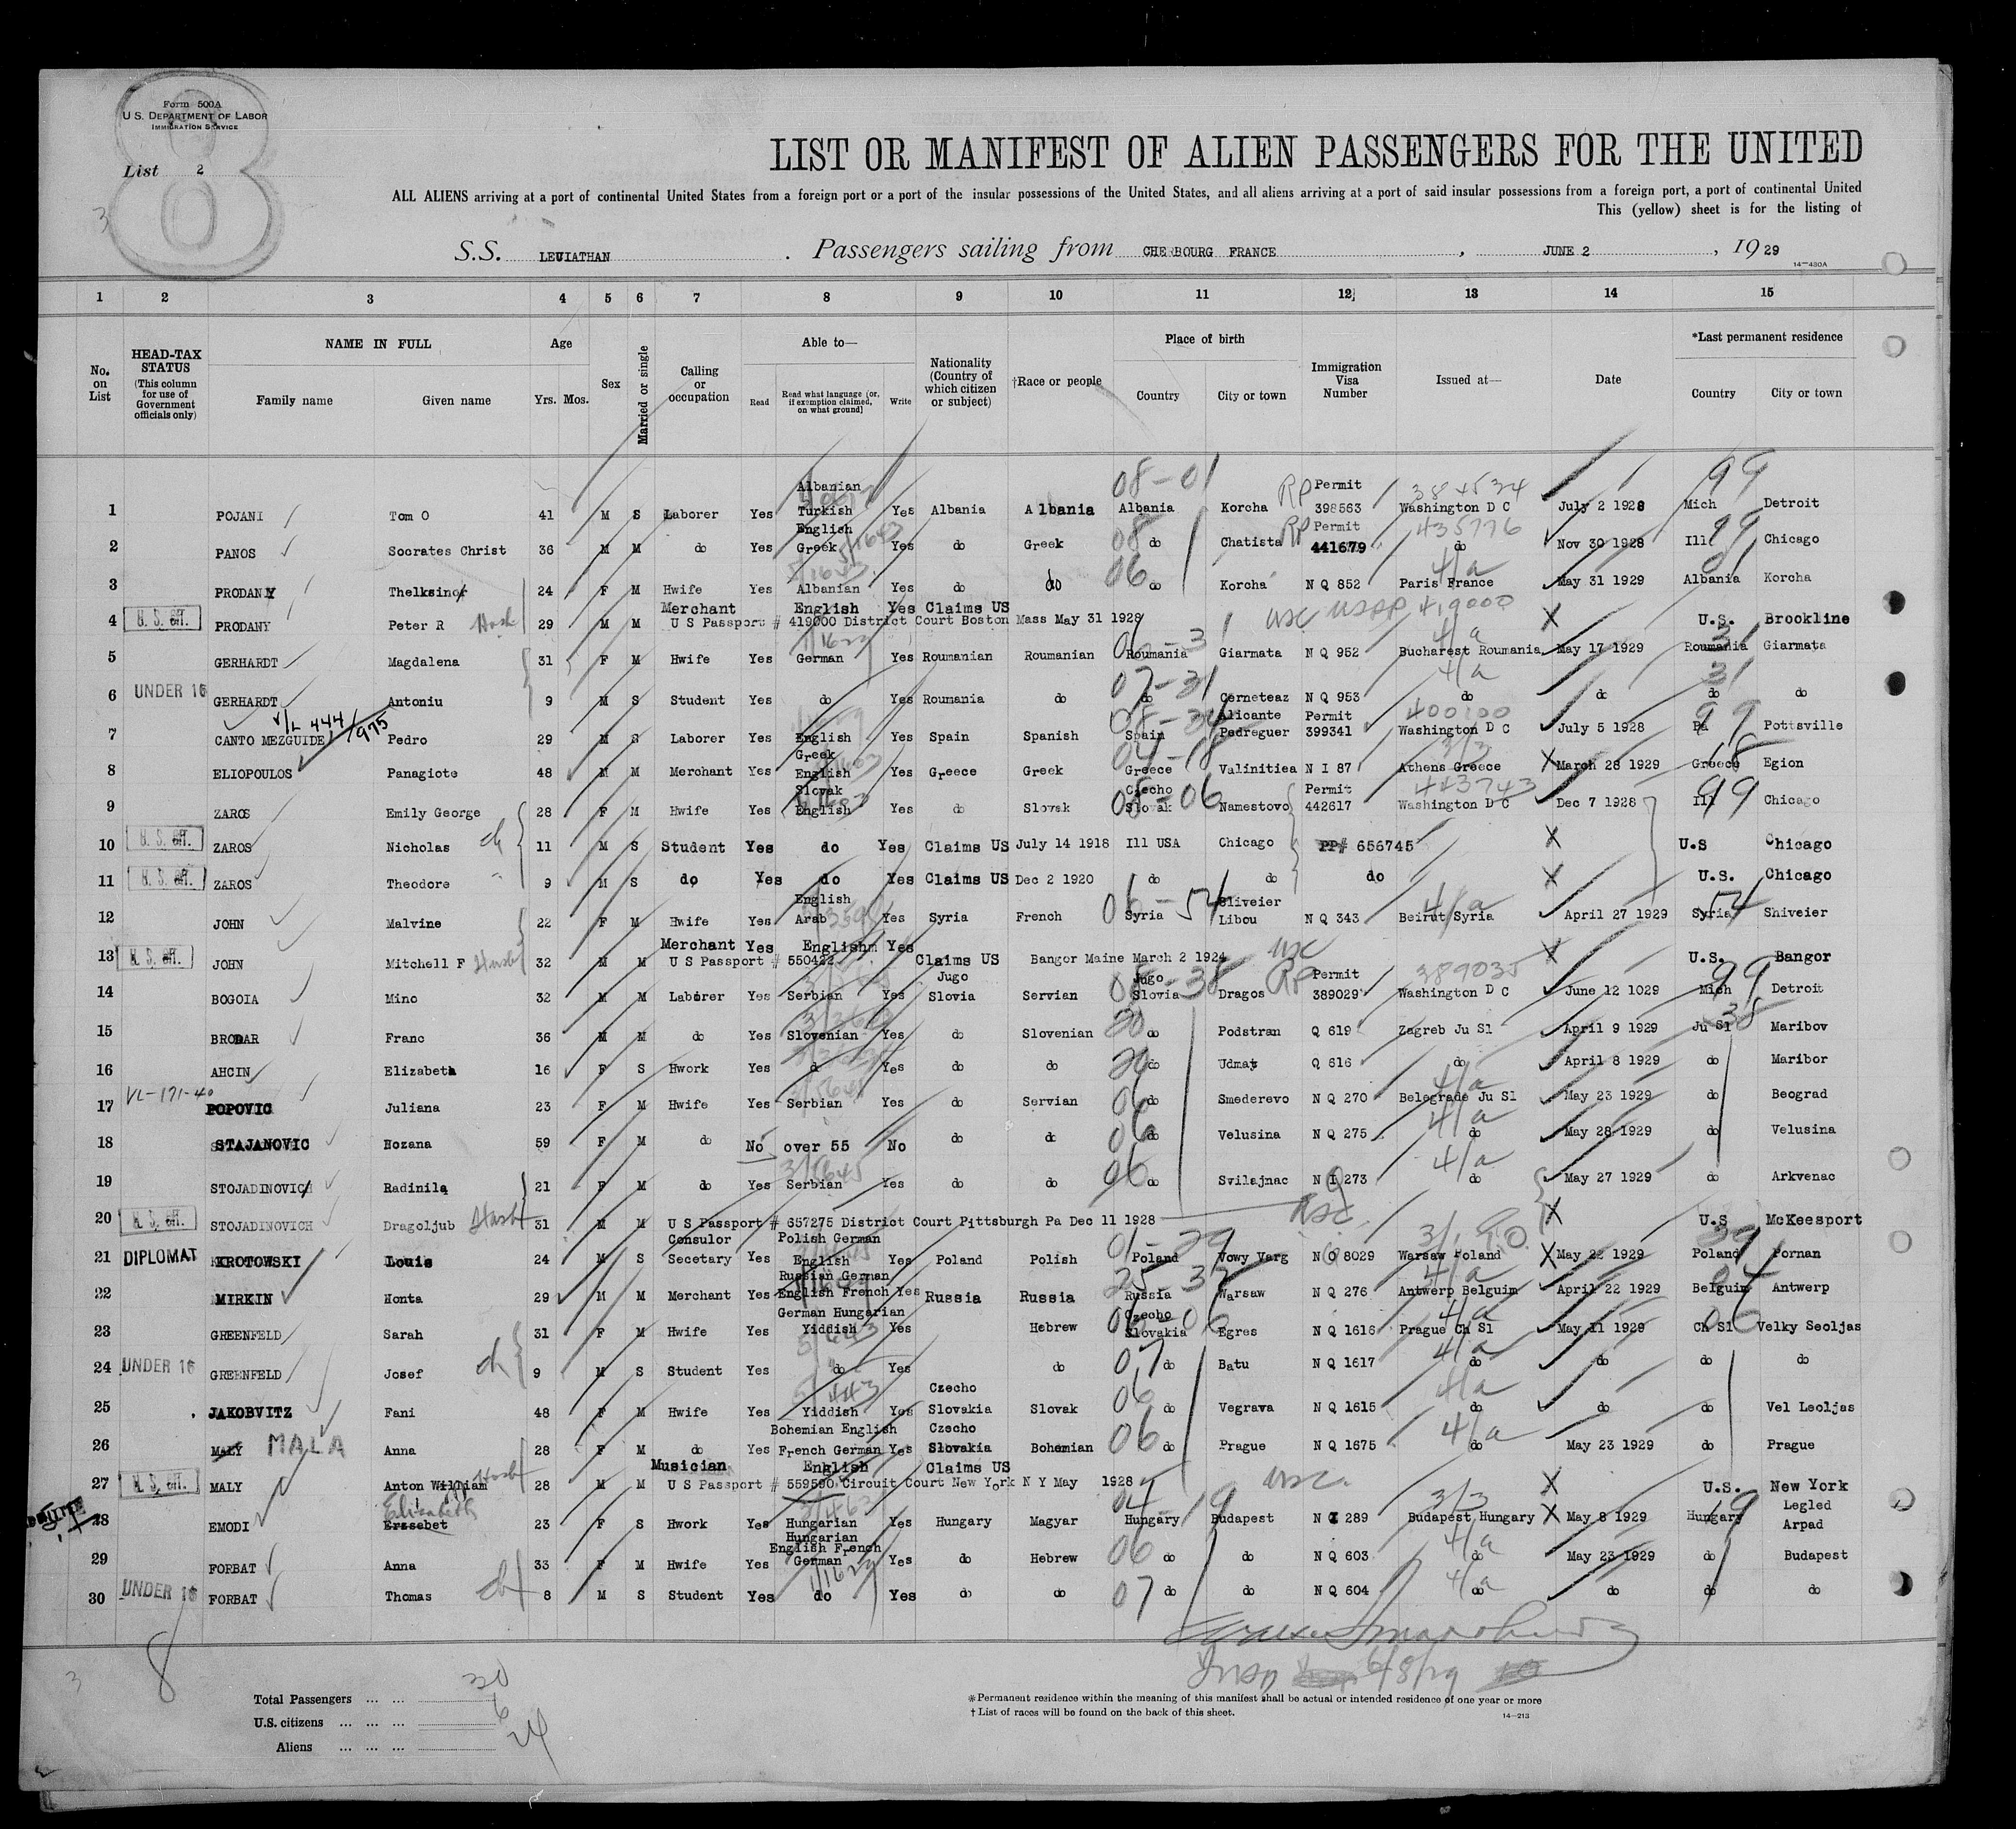 Form 500A
U.S. DEPARTMENT OF LABOR
IMMIGRATION SERVICE
8
List 2
3
LIST OR MANIFEST OF ALIEN PASSENGERS FOR THE UNITED
ALL ALIENS arriving at a port of continental United States from a foreign port or a port of the insular possessions of the United States, and all aliens arriving at a port of said insular possessions from a foreign port, a port of continental United
This (yellow) sheet is for the listing of
S.S. LEVIATHAN . Passengers sailing from CHERBOURG FRANCE , JUNE 2 , 19 29
14—430A
1 2 3 4 5 6 7 8 9 10 11 12 13 14 15
No. on List
HEAD-TAX STATUS (This column for use of Government officials only)
NAME IN FULL
Family name Given name
Age
Yrs. Mos.
Sex
Married or single
Calling or occupation
Able to—
Read
Read what language [or, if exemption claimed, on what ground]
Write
Nationality (Country of which citizen or subject)
†Race or people
Place of birth
Country City or town
Immigration Visa Number
Issued at—
Date
*Last permanent residence
Country City or town
Albanian 08-01 RP Permit 384534 99
1 POJANI Tom O 41 M S Laborer Yes Turkish Yes Albania Albania Albania Korcha 398563 Washington D C July 2 1928 Mich Detroit
English RP Permit 435776 99
2 PANOS Socrates Christ 36 M M do Yes Greek Yes do Greek 08 do Chatista 441679 do Nov 30 1928 Ill Chicago
06 4/a 01
3 PRODANY Thelksinor 24 F M Hwife Yes Albanian Yes do do do Korcha N Q 852 Paris France May 31 1929 Albania Korcha
Merchant English Yes Claims US
4 PRODANY Peter R Husb 29 M M U S Passport # 419000 District Court Boston Mass May 31 1928 USC USPP 419000 X U.S. Brookline
4/a 31
5 GERHARDT Magdalena 31 F M Hwife Yes German Yes Roumanian Roumanian Roumania Giarmata N Q 952 Bucharest Roumania May 17 1929 Roumania Giarmata
07-31 4/a 31
6 UNDER 16 GERHARDT Antoniu 9 M S Student Yes do Yes Roumania do do Cerneteaz N Q 953 do do do do
V/L 444/975 08-34 Alicante Permit 400100 99
7 CANTO MEZGUIDE Pedro 29 M S Laborer Yes English Yes Spain Spanish Spain Pedreguer 399341 Washington D C July 5 1928 Pa Pottsville
Greek 04-18 3/3 18
8 ELIOPOULOS Panagiote 48 M M Merchant Yes English Yes Greece Greek Greece Valinitiea N I 87 Athens Greece X March 28 1929 Greece Egion
Slovak Czecho 08-06 Permit 443743 99
9 ZAROS Emily George 28 F M Hwife Yes English Yes do Slovak Slovak Namestovo 442617 Washington D C Dec 7 1928 Ill Chicago
10 ZAROS Nicholas ch 11 M S Student Yes do Yes Claims US July 14 1918 Ill USA Chicago PP# 656745 X U.S Chicago
11 ZAROS Theodore 9 M S do Yes do Yes Claims US Dec 2 1920 do do do X U.S. Chicago
English 06-54 Sliveier 4/a 54
12 JOHN Malvine 22 F M Hwife Yes Arab Yes Syria French Syria Libou N Q 343 Beirut Syria April 27 1929 Syria Shiveier
Merchant Yes English Yes USC
13 JOHN Mitchell F Husb 32 M M U S Passport # 550422 Claims US Bangor Maine March 2 1924 X U.S. Bangor
Jugo Jugo 08-38 RP Permit 389035 99
14 BOGOIA Mino 32 M M Laborer Yes Serbian Yes Slovia Servian Slovia Dragos 389029 Washington D C June 12 1029 Mich Detroit
20 38
15 BRODAR Franc 36 M M do Yes Slovenian Yes do Slovenian do Podstran Q 619 Zagreb Ju Sl April 9 1929 Ju Sl Maribov
16 AHCIN Elizabeta 16 F S Hwork Yes do Yes do do 20 do Udmat Q 616 do April 8 1929 do Maribor
VL-171-40 4/a
17 POPOVIC Juliana 23 F M Hwife Yes Serbian Yes do Servian 06 do Smederevo N Q 270 Belegrade Ju Sl May 23 1929 do Beograd
4/a
18 STAJANOVIC Hozana 59 F M do No over 55 No do do 06 do Velusina N Q 275 do May 28 1929 do Velusina
4/a
19 STOJADINOVICH Radinila 21 F M do Yes Serbian Yes do do 06 do Svilajnac N I 273 do May 27 1929 do Arkvenac
20 STOJADINOVICH Dragoljub Husb 31 M M U S Passport # 657275 District Court Pittsburgh Pa Dec 11 1928 USC X U.S McKeesport
Consulor Polish German 01-29
21 DIPLOMAT KROTOWSKI Louis 24 M S Secetary Yes English Yes Poland Polish Poland Vowy Varg N O 8029 Warsaw Poland X May 22 1929 Poland Pornan
Russian German 4/a 04
22 MIRKIN Honta 29 M M Merchant Yes English French Yes Russia Russia Russia Warsaw N Q 276 Antwerp Belguim April 22 1929 Belguim Antwerp
German Hungarian Czecho 06 4/a 06
23 GREENFELD Sarah 31 F M Hwife Yes Yiddish Yes Hebrew Slovakia Egres N Q 1616 Prague Ch Sl May 11 1929 Ch Sl Velky Seoljas
4/a
24 UNDER 16 GREENFELD Josef ch 9 M S Student Yes do Yes do 07 do Batu N Q 1617 do do do do
Czecho 4/a
25 JAKOBVITZ Fani 48 F M Hwife Yes Yiddish Yes Slovakia Slovak 06 do Vegrava N Q 1615 do do do Vel Leoljas
Bohemian English Czecho 4/a
26 MALY MALA Anna 28 F M do Yes French German Yes Slovakia Bohemian 06 do Prague N Q 1675 do May 23 1929 do Prague
Musician English Claims US
27 MALY Anton William Husb 28 M M U S Passport # 559590 Circuit Court New York N Y May 1928 USC X U.S. New York
Elizabeth 04-19 3/3 19 Legled
28 EMODI Erzsebet 23 F S Hwork Yes Hungarian Yes Hungary Magyar Hungary Budapest N I 289 Budapest Hungary X May 8 1929 Hungary Arpad
Hungarian
English French 4/a
29 FORBAT Anna 33 F M Hwife Yes German Yes do Hebrew 06 do do N Q 603 do May 23 1929 do Budapest
4/a
30 UNDER 16 FORBAT Thomas ch 8 M S Student Yes do Yes do do 07 do do N Q 604 do do do do
8
3
6/8/29
Total Passengers ... ... 30
U.S. citizens ... ... ... 6
Aliens ... ... ... 24
*Permanent residence within the meaning of this manifest shall be actual or intended residence of one year or more
† List of races will be found on the back of this sheet.
14—213